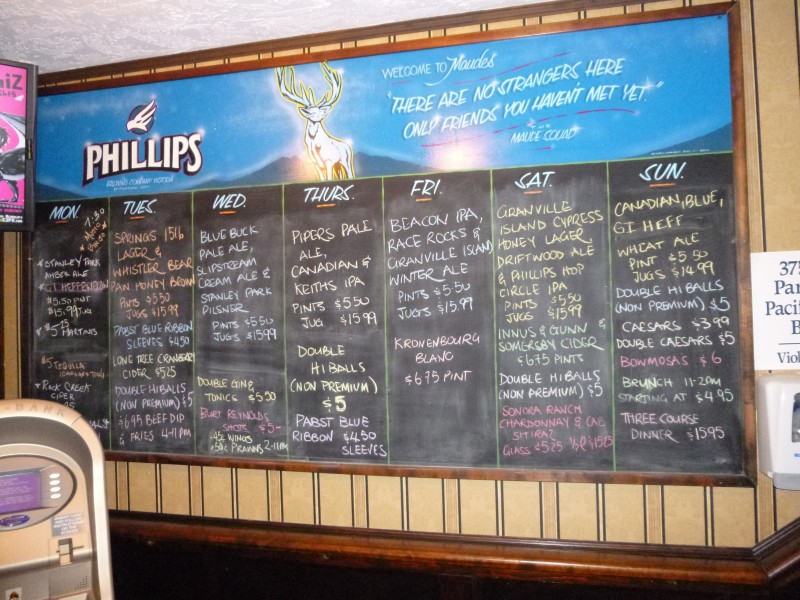 PHILLIPS
WELCOME TO Maudes
"THERE ARE NO STRANGERS HERE
ONLY FRIENDS YOU HAVEN'T MET YET."
MON.
STANLEY PARK
AMBER ALE
$5.50 PINT
$15.99 JUG
$5 TEQUILA
ROCK CREEK
CIDER
TUES.
SPRINGS 1516
LAGER &
WHISTLER BEAR
PAW HONEY BROWN
PINTS $5.50
JUGS $15.99
PABST BLUE RIBBON
SLEEVES $4.50
LONE TREE CRANBERRY
CIDER $5.25
DOUBLE HI BALLS
(NON PREMIUM) $5
$6.95 BEEF DIP
& FRIES 4-11PM
WED.
BLUE BUCK
PALE ALE,
SLIPSTREAM
CREAM ALE &
STANLEY PARK
PILSNER
PINTS $5.50
JUGS $15.99
DOUBLE GIN &
TONICS $5.50
BURT REYNOLDS
SHOTS $5-
.45¢ WINGS
.50¢ PRAWNS 2-11PM
THURS.
PIPERS PALE
ALE,
CANADIAN &
KEITHS IPA
PINTS $5.50
JUG $15.99
DOUBLE
HI BALLS
(NON PREMIUM)
$5
PABST BLUE
RIBBON $4.50
SLEEVES
FRI.
BEACON IPA,
RACE ROCKS &
GRANVILLE ISLAND
WINTER ALE
PINTS $5.50
JUGS $15.99
KRONENBOURG
BLANC
$6.75 PINT
SAT.
GRANVILLE
ISLAND CYPRESS
HONEY LAGER,
DRIFTWOOD ALE
& PHILLIPS HOP
CIRCLE IPA
PINTS $5.50
JUGS $15.99
INNUS & GUNN &
SOMERSBY CIDER
$6.75 PINTS
DOUBLE HI BALLS
(NON PREMIUM) $5
SONORA RANCH
CHARDONNAY & CAB
SHIRAZ
GLASS $5.25
SUN.
CANADIAN, BLUE,
GI HEFF
WHEAT ALE
PINT $5.50
JUGS $14.99
DOUBLE HI BALLS
(NON PREMIUM) $5
CAESARS $3.99
DOUBLE CAESARS $5
BOWMOSAS $6
BRUNCH 11-2PM
STARTING AT $4.95
THREE COURSE
DINNER $15.95
375
Par
Pacif
B
Viol